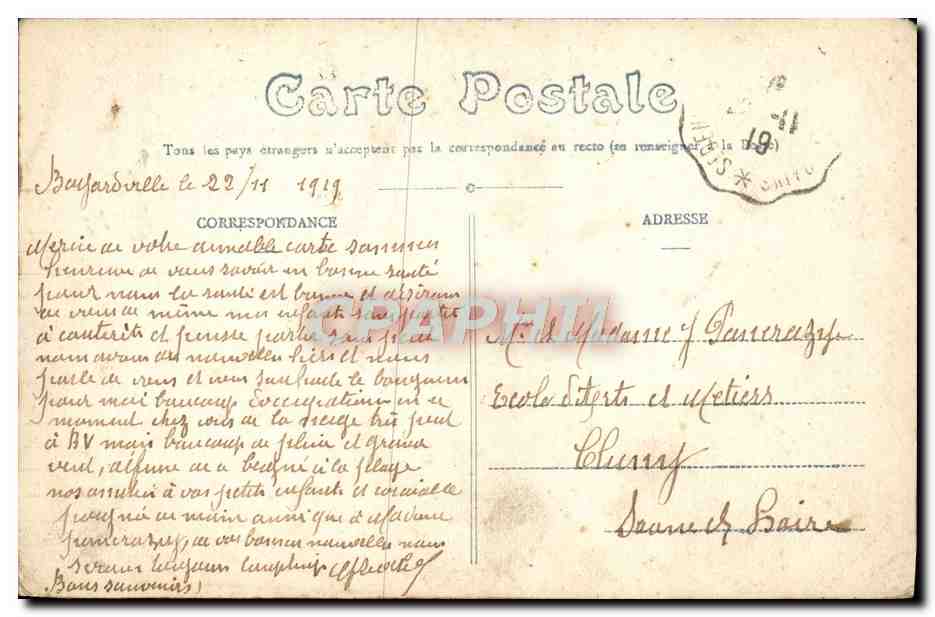 Carte Postale
Tous les pays étrangers n'acceptent pas la correspondance au recto (se renseigner à la Poste)
Boyardville le 22/11 1919
CORRESPONDANCE
Merci de votre aimable carte sommes
heureux de vous savoir en bonne santé
pour nous la santé est bonne et désirons
de vous de même mes enfants sont
à et pense
nous avons des nouvelles hiers et nous
parle de vous et vous souhaite le bonjour
pour moi beaucoup d'occupations en ce
moment chez vous de la neige très peut
à BV mais beaucoup de pluie et grand
vent, de à la plage
à vos petits enfants et cordiale
poignée de main ainsi que à Madame
Pancrazy, de vos bonnes nouvelles nous
serons toujours
Bons souvenirs
ADRESSE
Mr et Madame J Pancrazy
Ecole d'Arts et Metiers
Cluny
Saone et Loire
19 11
19
CPAPHIL